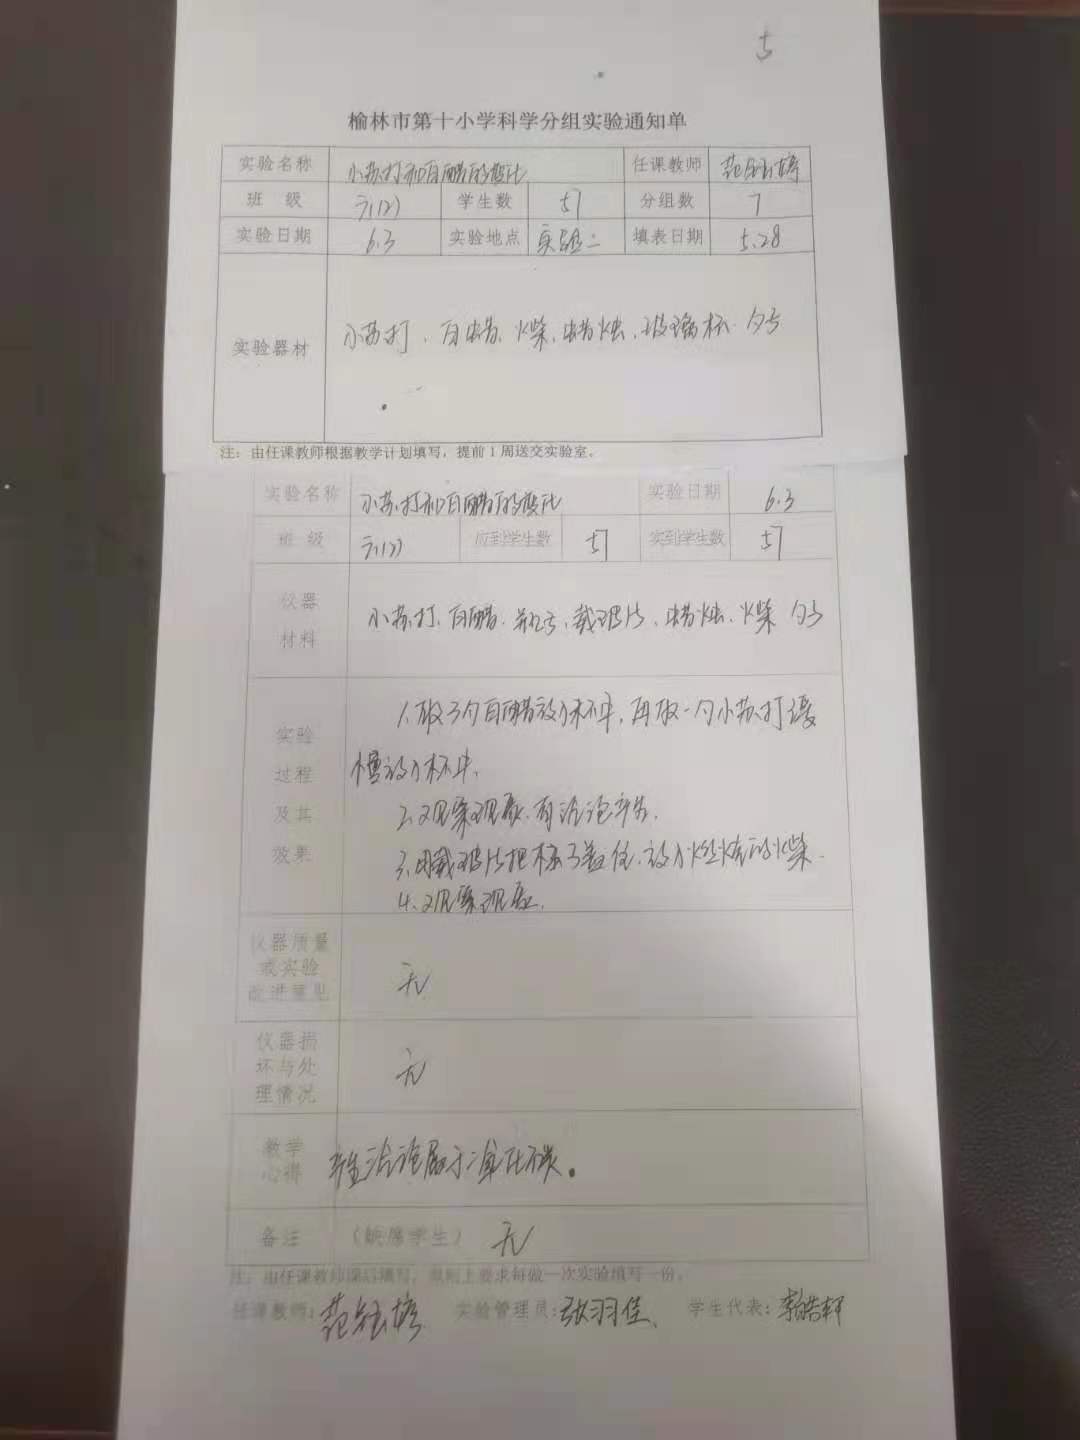 5
榆林市第十小学科学分组实验通知单
实验名称 小苏打和白醋的变化 任课教师 范钰婷
班 级 六(2) 学生数 57 分组数 7
实验日期 6.3 实验地点 实验二 填表日期 5.28
实验器材 小苏打、白醋、火柴、蜡烛、玻璃杯、勺子
注:由任课教师根据教学计划填写,提前1周送交实验室。
实验名称 小苏打和白醋的变化 实验日期 6.3
班 级 六(2) 应到学生数 57 实到学生数 57
仪器
材料
小苏打、白醋、瓶子、载玻片、蜡烛、火柴 勺子
实验
过程
及其
效果
1.取3勺白醋放入杯中,再取一勺小苏打慢
慢放入杯中。
2.观察现象,有气泡产生。
3.用载玻片把杯子盖住,放入燃烧的火柴.
4.观察现象.
仪器质量
或实验
改进意见
无
仪器损
坏与处
理情况
无
教学
心得
产生气泡属于二氧化碳。
备注 (缺席学生) 无
注:由任课教师课后填写,原则上要求每做一次实验填写一份。
任课教师:范钰婷 实验管理员:张羽佳 学生代表:李皓轩